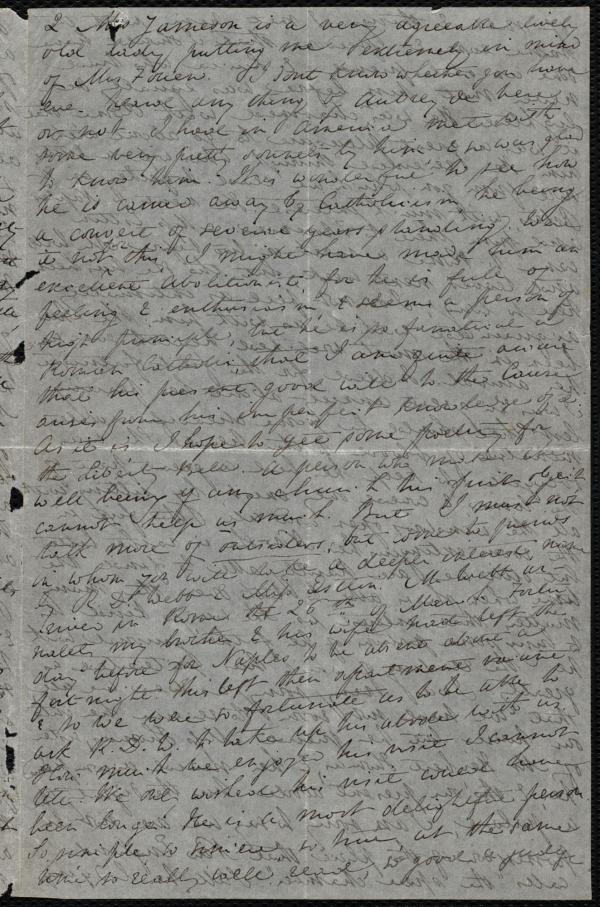 2 Mrs Jameson is a very agreeable lively
old lady putting me extremely in mind
of Mrs Follen. I dont know whether you have
ever heard any thing of Aubrey de Vere
or not. I had in America met with
some very pretty sonnets by him & so was glad
to know him. It is wonderful to see how
he is carried away by Catholicism, he being
a convert of several years standing. Was
it not for this I might have made him an
excellent abolitionist for he is full of
feeling & enthusiasm, & seems a person of
high principle, but he is so fanatical a
Roman Catholic that I am quite
that his present good will to the Cause
arises from his imperfect knowledge of it.
As it is I hope to get some poetry for
the Liberty Bell. A person who makes the
well being of any church his first object
cannot help us much. But I must not
talk more of outsiders, but come to friends
in whom you will take a deeper interest, namely
R. D. Webb & Miss Estlin. Mr Webb ar-
rived in Rome the 26th of March. Fortu-
nately my brother & his wife had left the
day before for Naples to be absent about a
fortnight. This left their apartment vacant
& so we were so fortunate as to be able to
ask R. D. W. to take up his abode with us
How much we enjoyed his visit I cannot
tell. We only wished his visit could have
been longer. He is a most delightful person
So simple, so sincere, so true, at the same
time so really well read, so good